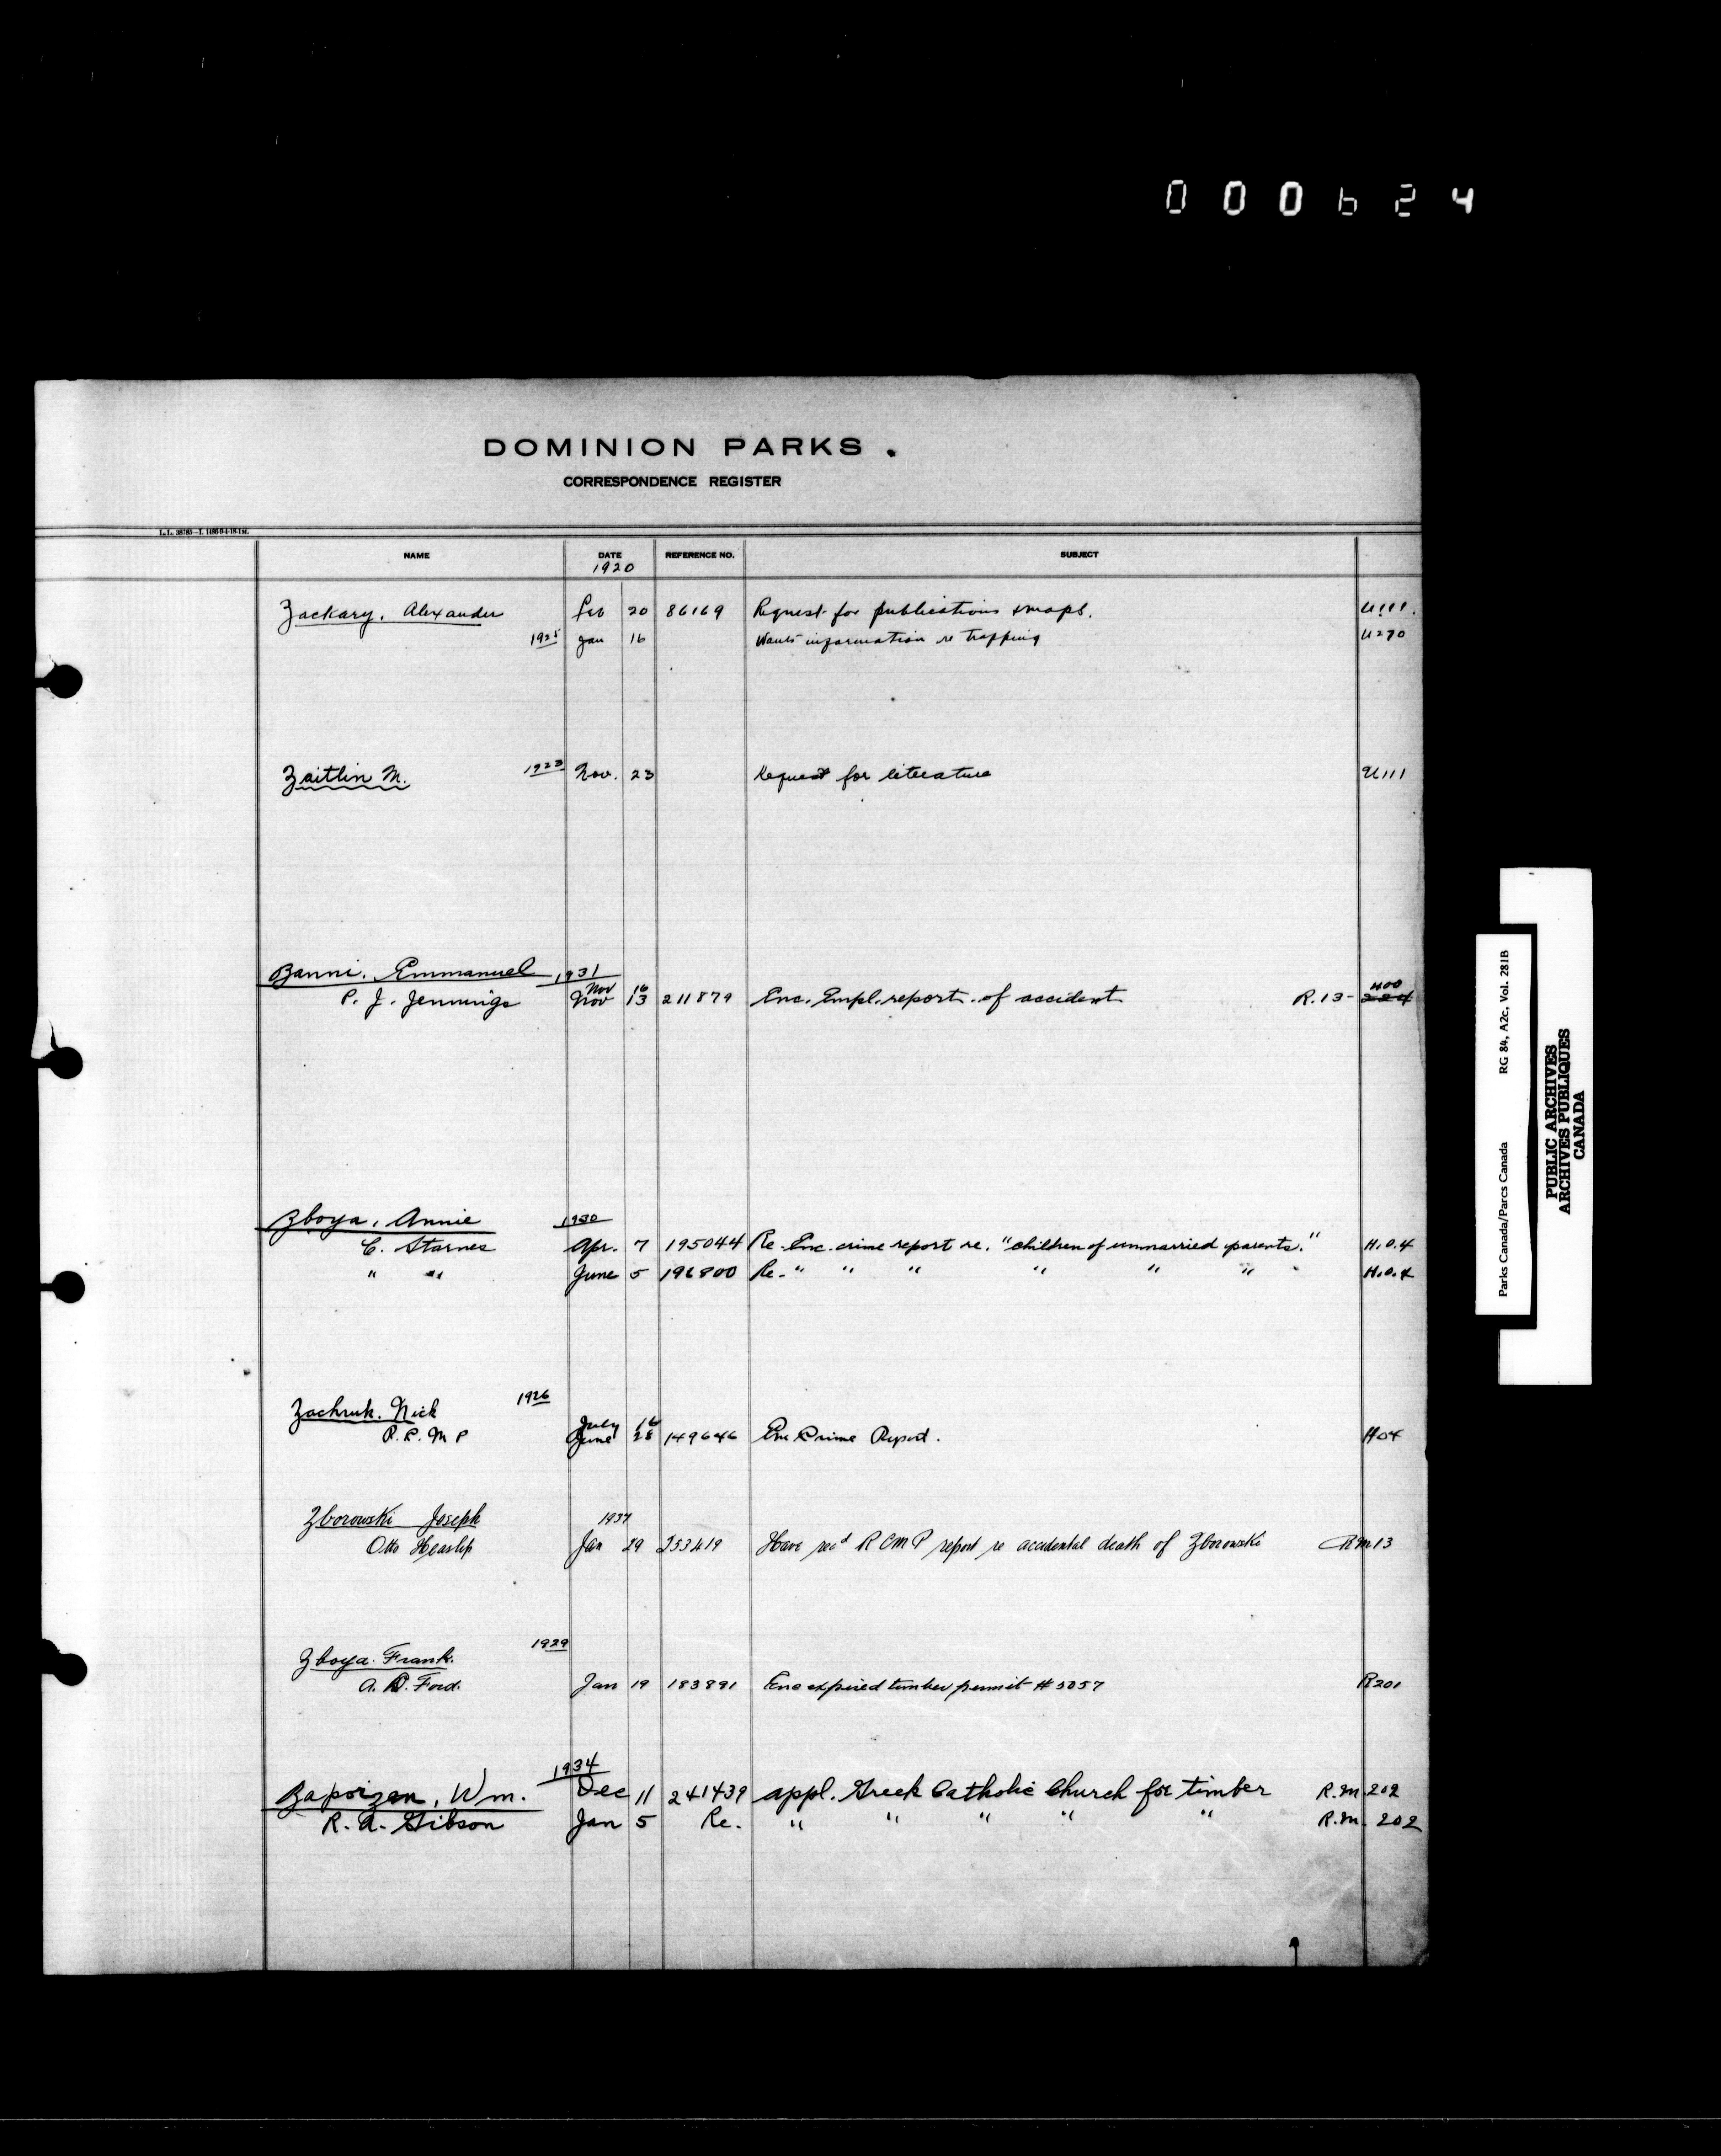 000624
DOMINION PARKS.
CORRESPONDENCE REGISTER
L.L. 38785—I. 1186-9-4-18-1M.
NAME DATE REFERENCE NO. SUBJECT
1920
Zackary, Alexander Feb 20 86169 Request for publications & maps. U111.
1925 Jan 16 Wants information re trapping U270
Zaitlin M. 1923 Nov. 23 Request for literature U111
Zanni, Emmanuel 1931
Nov 16 400
P. J. Jennings Nov 13 211879 Enc. Empl. report of accident R.13- 224
Zboya, Annie 1930
C. Starnes Apr. 7 195044 Re. Enc. crime report re. "children of unmarried parents." H.0.4
" " June 5 196800 Re. " " " " " " H.0.4
Zachruk. Nick 1926
July 16
R.C.M P June 28 149646 Enc Crime Report. H04
Zborowski Joseph 1937
Otto Heaslip Jan 29 253419 Have rec'd R C M P report re accidental death of Zborowski RM13
Zboya. Frank. 1929
A. D. Ford. Jan 19 183891 Enc expired timber permit # 5057 R201
1934
Zaporzan, Wm. Dec 11 241439 appl. Greek Catholic Church for timber R.M 202
R. A. Gibson Jan 5 Re. " " " " " R.M. 202
Parks Canada/Parcs Canada RG 84, A2c, Vol. 281B
PUBLIC ARCHIVES
ARCHIVES PUBLIQUES
CANADA